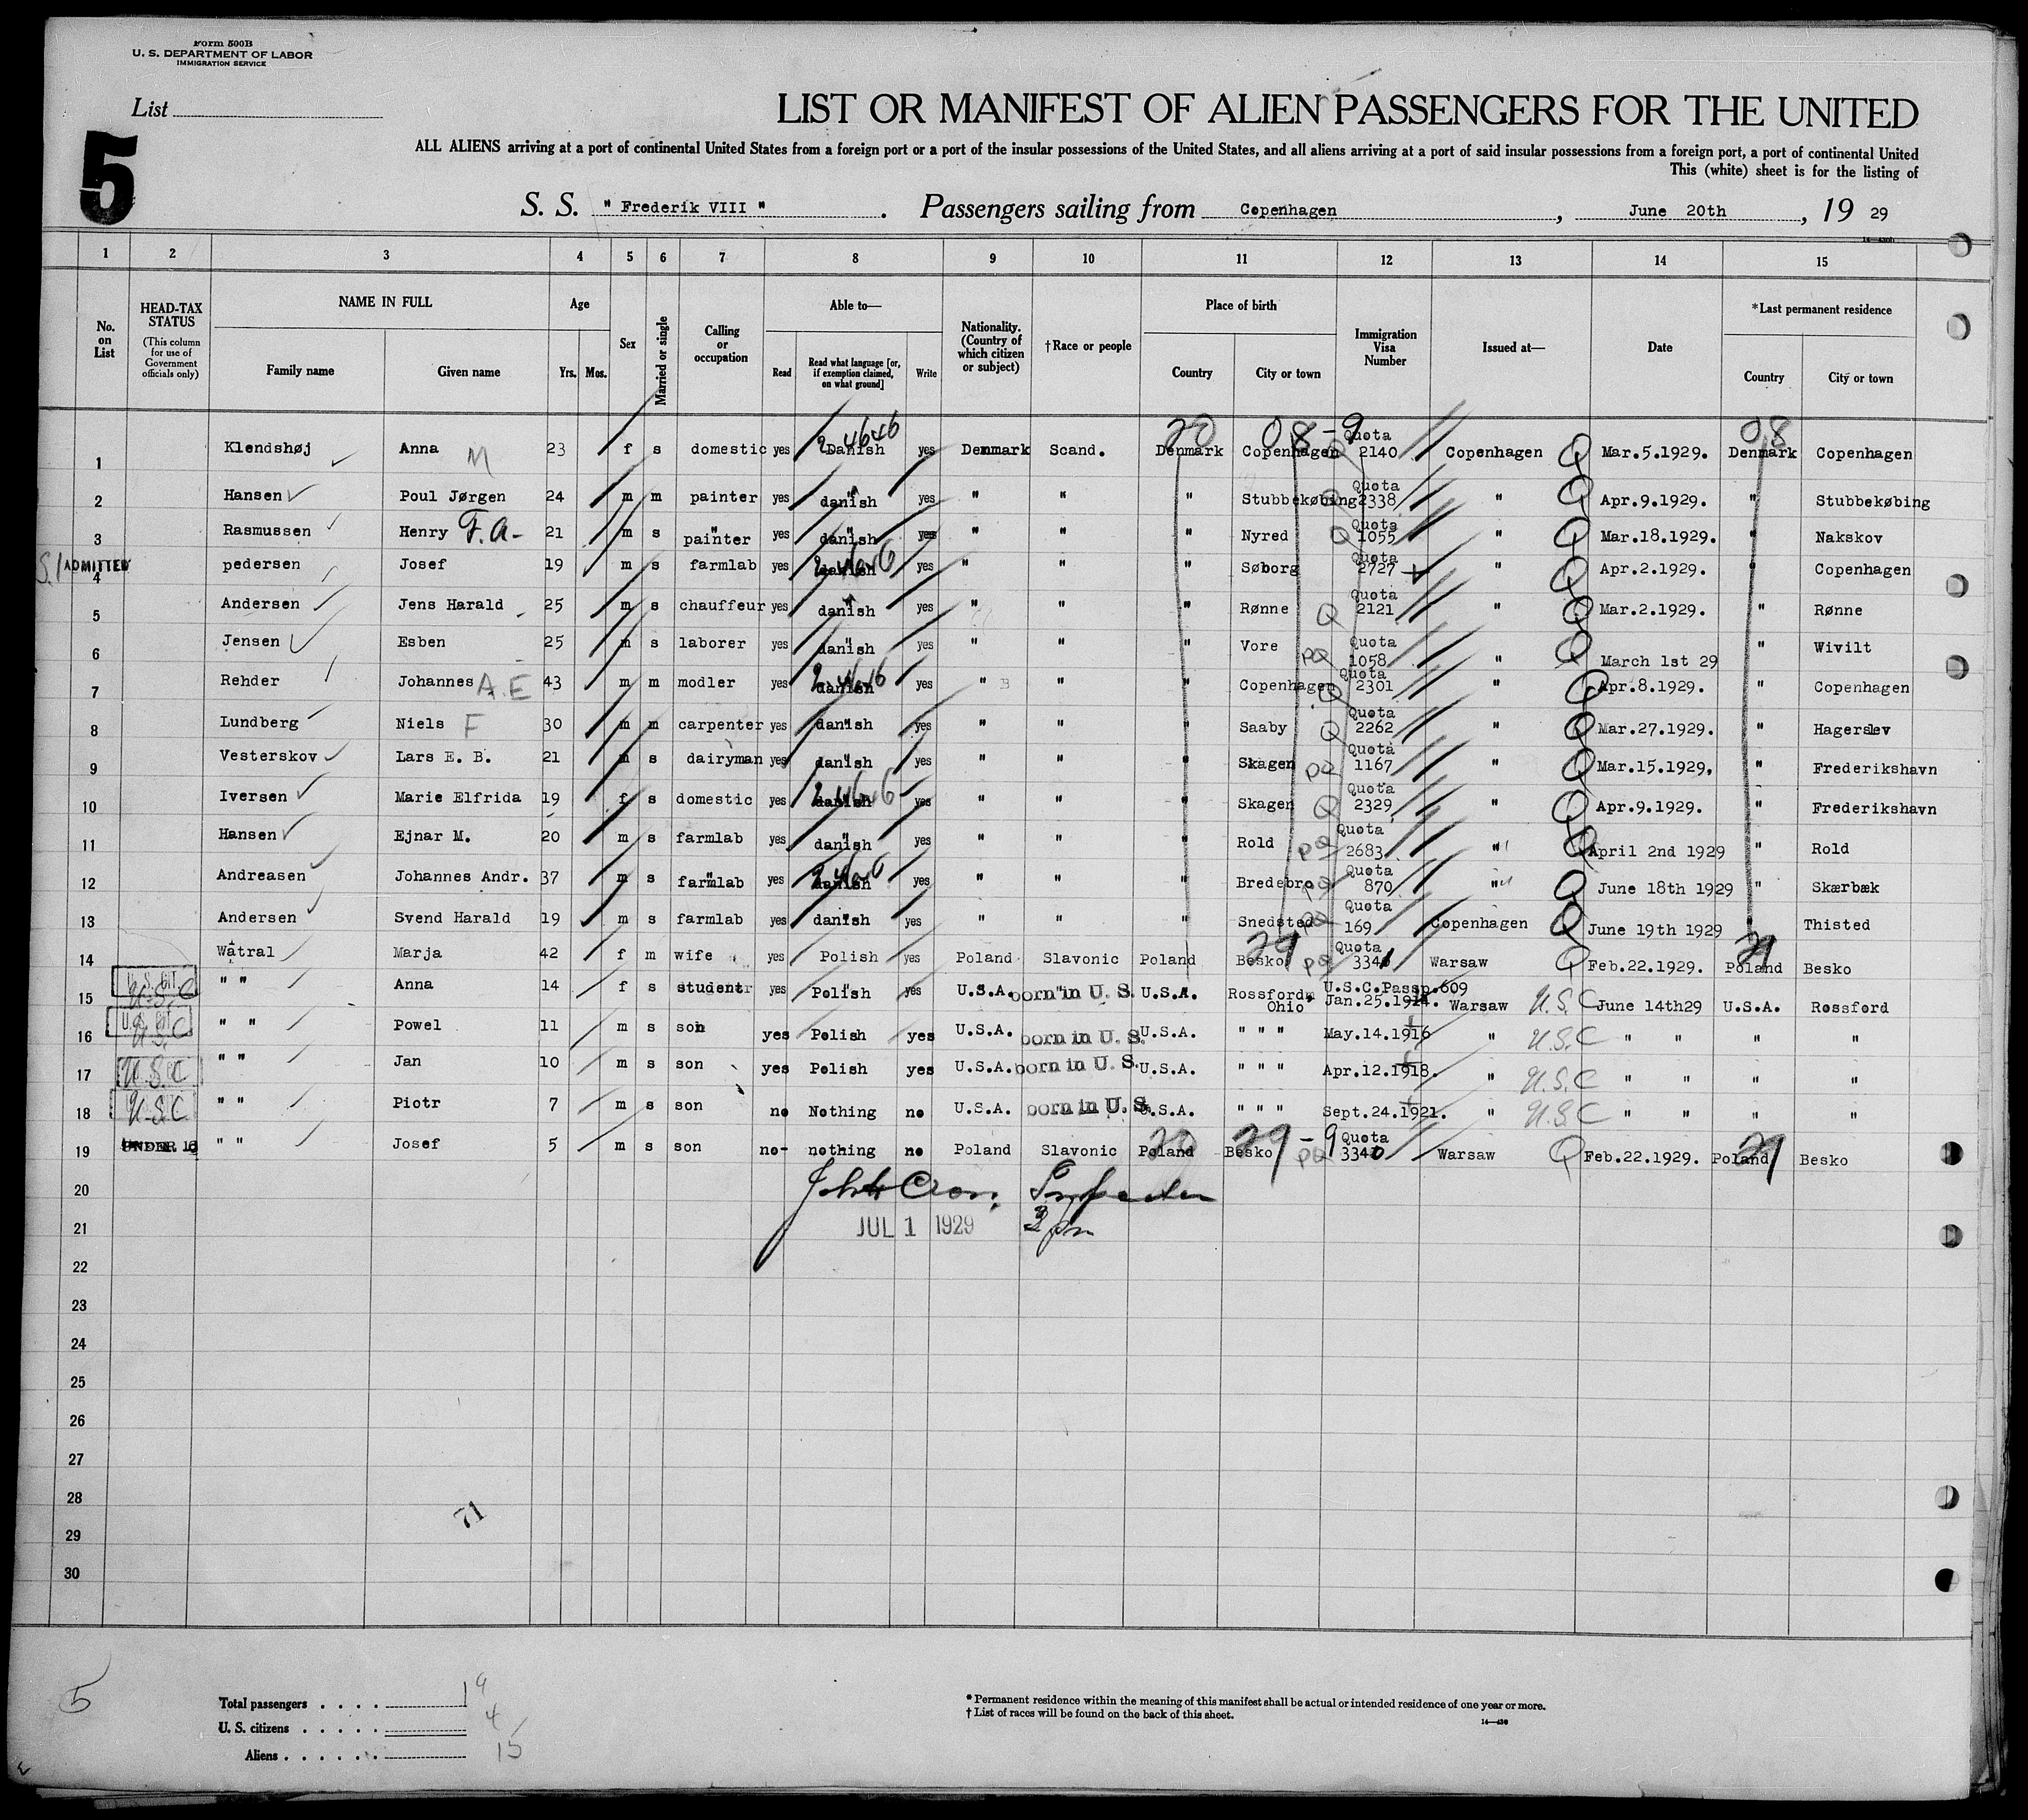 Form 500B
U. S. DEPARTMENT OF LABOR
IMMIGRATION SERVICE
List
5
LIST OR MANIFEST OF ALIEN PASSENGERS FOR THE UNITED
ALL ALIENS arriving at a port of continental United States from a foreign port or a port of the insular possessions of the United States, and all aliens arriving at a port of said insular possessions from a foreign port, a port of continental United
This (white) sheet is for the listing of
S. S. " Frederik VIII " . Passengers sailing from Copenhagen , June 20th , 19 29
1 2 3 4 5 6 7 8 9 10 11 12 13 14 15
No. on List
HEAD-TAX STATUS (This column for use of Government officials only)
NAME IN FULL Family name Given name
Age Yrs. Mos.
Sex
Married or single
Calling or occupation
Able to— Read Read what language [or, if exemption claimed, on what ground] Write
Nationality. (Country of which citizen or subject)
†Race or people
Place of birth Country City or town
Immigration Visa Number
Issued at—
Date
*Last permanent residence Country City or town
20 08-9 08
1 Klendshøj Anna M 23 f s domestic yes Danish yes Denmark Scand. Denmark Copenhagen Quota 2140 Copenhagen Q Mar.5.1929. Denmark Copenhagen
2 Hansen Poul Jørgen 24 m m painter yes danish yes " " " Stubbekøbing Quota 2338 " Q Apr.9.1929. " Stubbekøbing
3 Rasmussen Henry F.A. 21 m s painter yes danish yes " " " Nyred Q Quota 1055 " Q Mar.18.1929. " Nakskov
ADMITTED 4 pedersen Josef 19 m s farmlab yes danish yes " " " Søborg Quota 2727 " Q Apr.2.1929. " Copenhagen
5 Andersen Jens Harald 25 m s chauffeur yes danish yes " " " Rønne Q Quota 2121 " Q Mar.2.1929. " Rønne
6 Jensen Esben 25 m s laborer yes danish yes " " " Vore PQ Quota 1058 " Q March 1st 29 " Wivilt
7 Rehder Johannes A.E 43 m m modler yes danish yes " " " Copenhagen Q Quota 2301 " Q Apr.8.1929. " Copenhagen
8 Lundberg Niels F 30 m m carpenter yes danish yes " " " Saaby Q Quota 2262 " Q Mar.27.1929. " Hagerslev
9 Vesterskov Lars E. B. 21 m s dairyman yes danish yes " " " Skagen PQ Quota 1167 " Q Mar.15.1929, " Frederikshavn
10 Iversen Marie Elfrida 19 f s domestic yes danish yes " " " Skagen Q Quota 2329 " Q Apr.9.1929. " Frederikshavn
11 Hansen Ejnar M. 20 m s farmlab yes danish yes " " " Rold PQ Quota 2683 " Q April 2nd 1929 " Rold
12 Andreasen Johannes Andr. 37 m s farmlab yes danish yes " " " Bredebro Quota 870 " Q June 18th 1929 " Skærbæk
13 Andersen Svend Harald 19 m s farmlab yes danish yes " " " Snedsted PQ Quota 169 Copenhagen Q June 19th 1929 " Thisted
14 Watral Marja 42 f m wife yes Polish yes Poland Slavonic Poland Besko 29 PQ Quota 3341 Warsaw Q Feb.22.1929. Poland Besko
U.S.C 15 " " Anna 14 f s student yes Polish yes U.S.A. born in U. S. U.S.A. Rossford Ohio U.S.C.Passp.609 Jan.25.1914. Warsaw U.S.C June 14th29 U.S.A. Rossford
U.S.C 16 " " Powel 11 m s son yes Polish yes U.S.A. born in U. S. U.S.A. " " " May.14.1916 " U.S.C " " " "
U.S.C 17 " " Jan 10 m s son yes Polish yes U.S.A. born in U. S. U.S.A. " " " Apr.12.1918. " U.S.C " " " "
U.S.C 18 " " Piotr 7 m s son no Nothing no U.S.A. born in U. S. U.S.A. " " " Sept.24.1921. " U.S.C " " " "
UNDER 16 19 " " Josef 5 m s son no- nothing no Poland Slavonic Poland Besko 29-9 PQ Quota 3340 Warsaw Q Feb.22.1929. Poland Besko
20
21 JUL 1 1929
22
23
24
25
26
27
28
71
29
30
5
Total passengers . . . . 19
U. S. citizens . . . . . 4
Aliens . . . . . . 15
* Permanent residence within the meaning of this manifest shall be actual or intended residence of one year or more.
† List of races will be found on the back of this sheet.
14—430